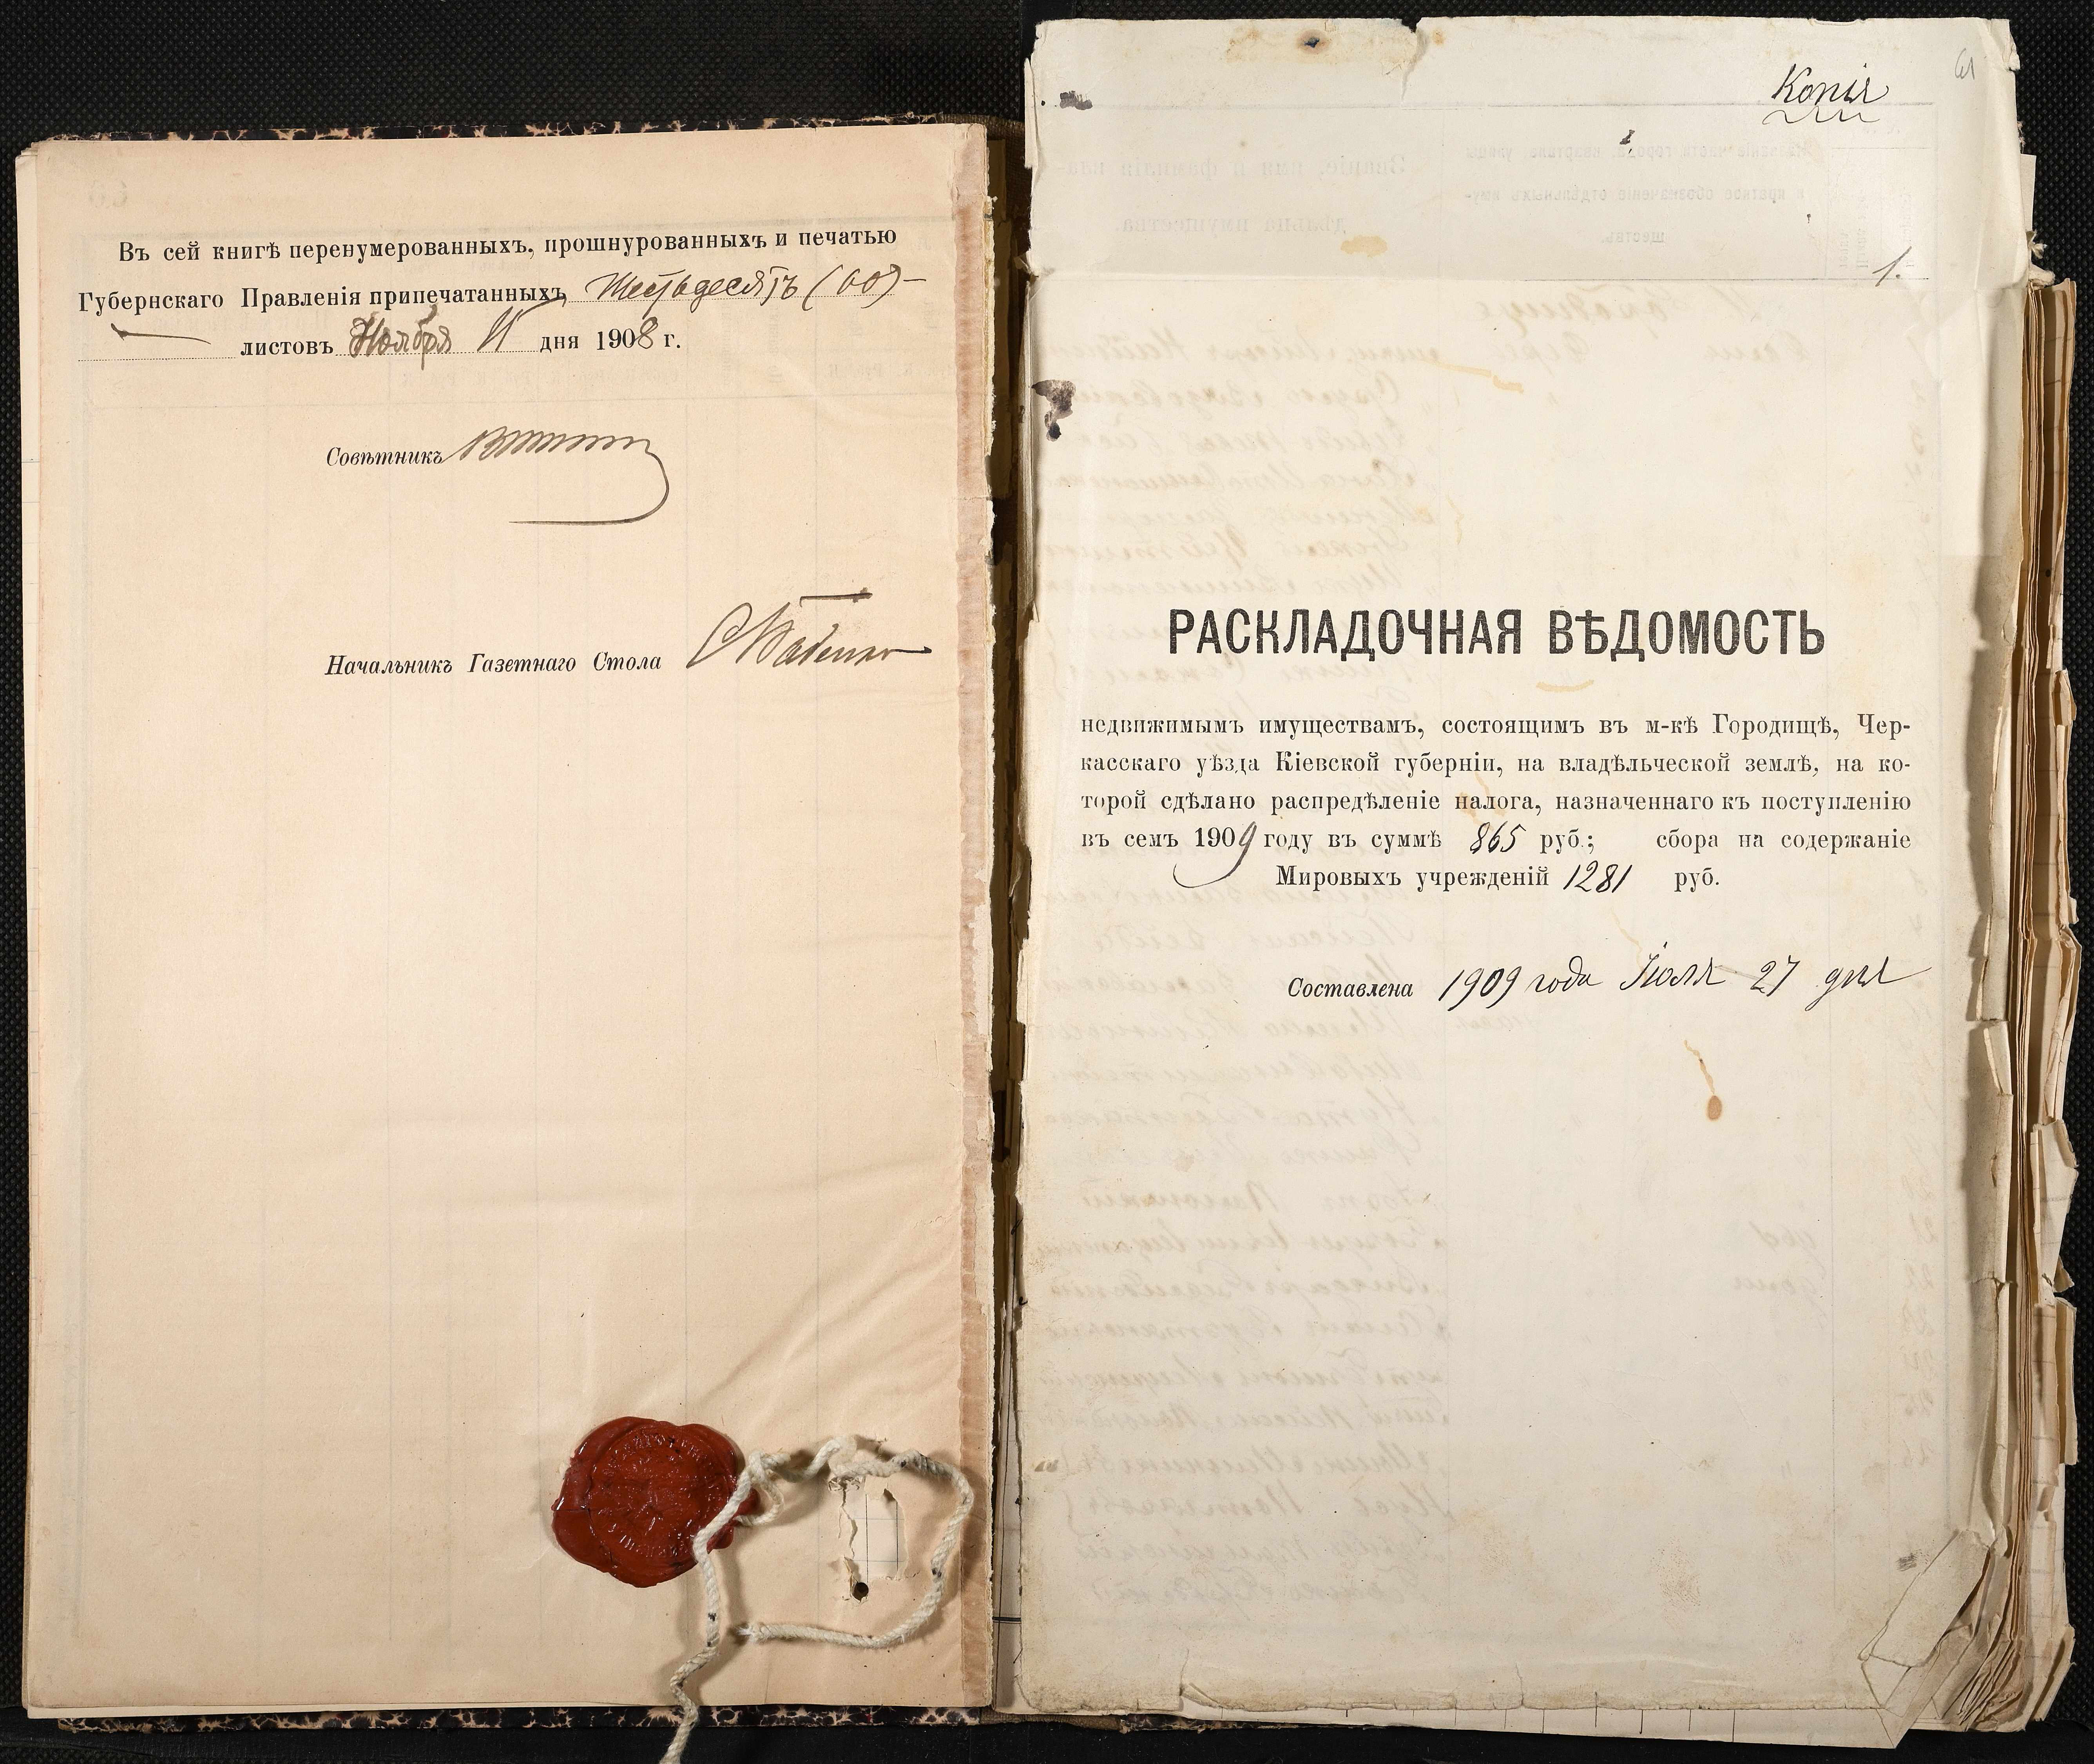 Въ сей книгѣ перенумерованныхъ, прошнурованныхъ и печатью
Губернскаго Правленія припечатанныхъ Шестьдесятъ (60)
листовъ Ноября 11 дня 1908 г.
Совѣтникъ
Начальникъ Газетнаго Стола
61
Копія
1.
РАСКЛАДОЧНАЯ ВѢДОМОСТЬ
недвижимымъ имуществамъ, состоящимъ въ м-кѣ Городищѣ, Чер-
касскаго уѣзда Кіевской губерніи, на владѣльческой землѣ, на ко-
торой сдѣлано распредѣленіе налога, назначеннаго къ поступленію
въ семъ 1909 году въ суммѣ 865 руб.; сбора на содержаніе
Мировыхъ учрежденій 1281 руб.
Составлена 1909 года Іюля 27 дня